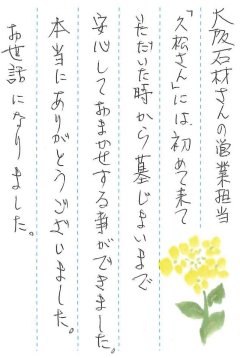 大阪石材さんの営業担当
「久松さん」には、初めて来て
いただいた時から墓じまいまで
安心しておまかせする事ができました。
本当にありがとうございました。
お世話になりました。